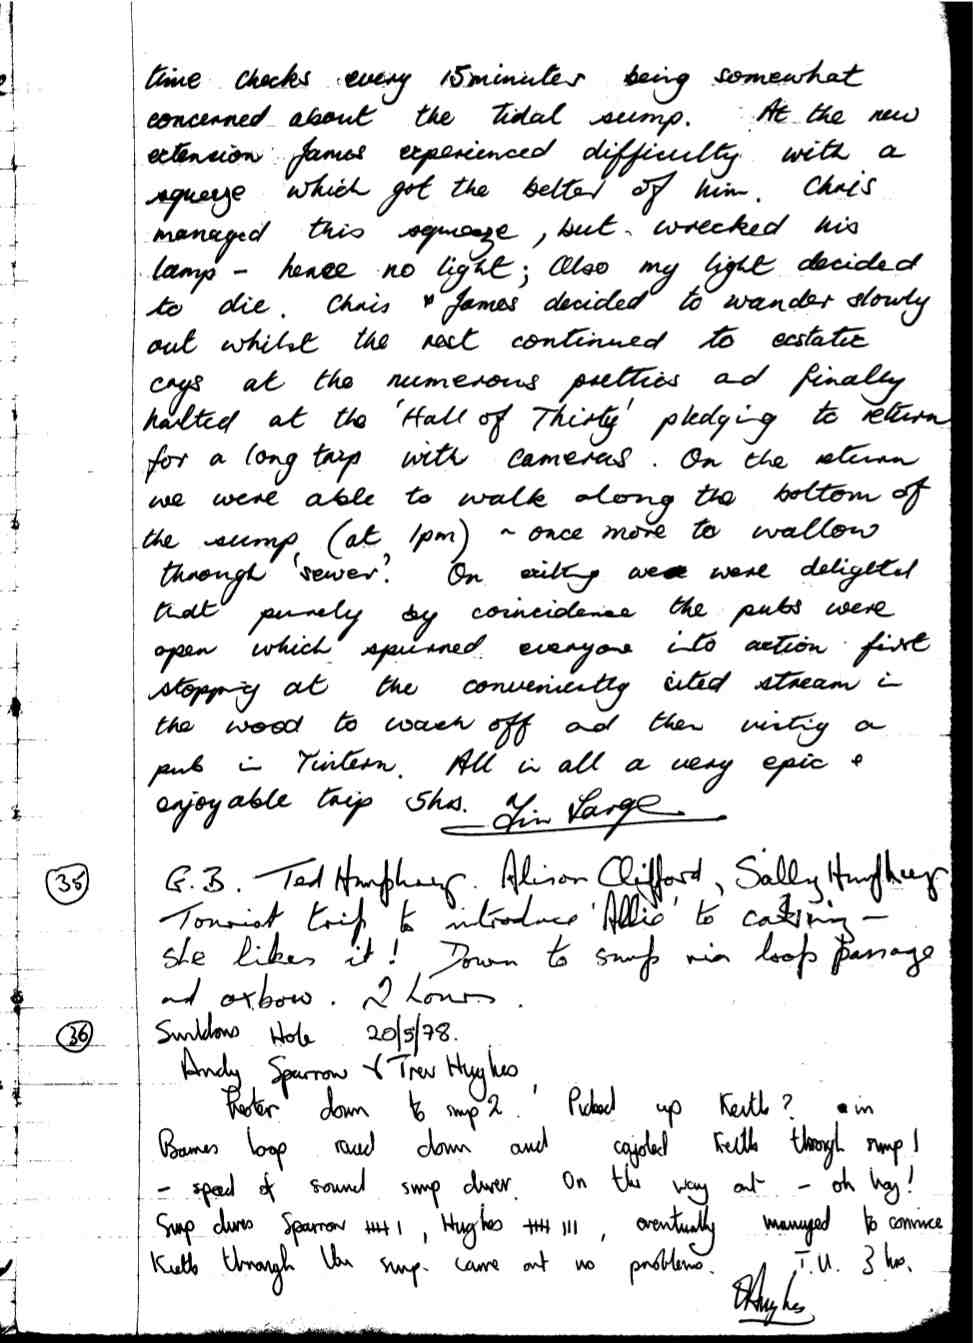 time checks every 15 minutes being somewhat
concerned about the tidal sump. At the new
extension James experienced difficulty with a
squeeze which got the better of him. Chris
managed this squeeze, but wrecked his
lamp - hence no light; Also my light decided
to die. Chris & James decided to wander slowly
out whilst the rest continued to ecstatic
crys at the numerous pretties ad finally
halted at the 'Hall of Thirty' pledging to return
for a long trip with cameras. On the return
we were able to walk along the bottom of
the sump (at 1pm) ~ once more to wallow
through 'sewer'. On exiting were delighted
that purely by coincidence the pubs were
open which spurned everyone into action first
stopping at the conveniently cited stream in
the wood to wash off ad then visting a
pub in Tintern. All in all a very epic &
enjoyable trip 5hrs. Tim Large
(35) G.B. Ted Humphreys. Alison Clifford, Sally Humphreys
Tourist trip to introduce 'Allie' to caving -
she likes it! Down to sump via loop passage
and oxbow. 2 hours.
(36) Swildons Hole 20/5/78.
Andy Sparrow & Trev Hughes
down to sump 2. Picked up Keith? in
Barnes loop raced down and cajoled Keith through sump 1
- speed of sound sump diver. On the way out - oh hog!
Sump dives Sparrow 卌 I, Hughes 卌 III, eventually managed to convince
Keith through the sump. came out no problems. T.U. 3 hrs.
T Hughes